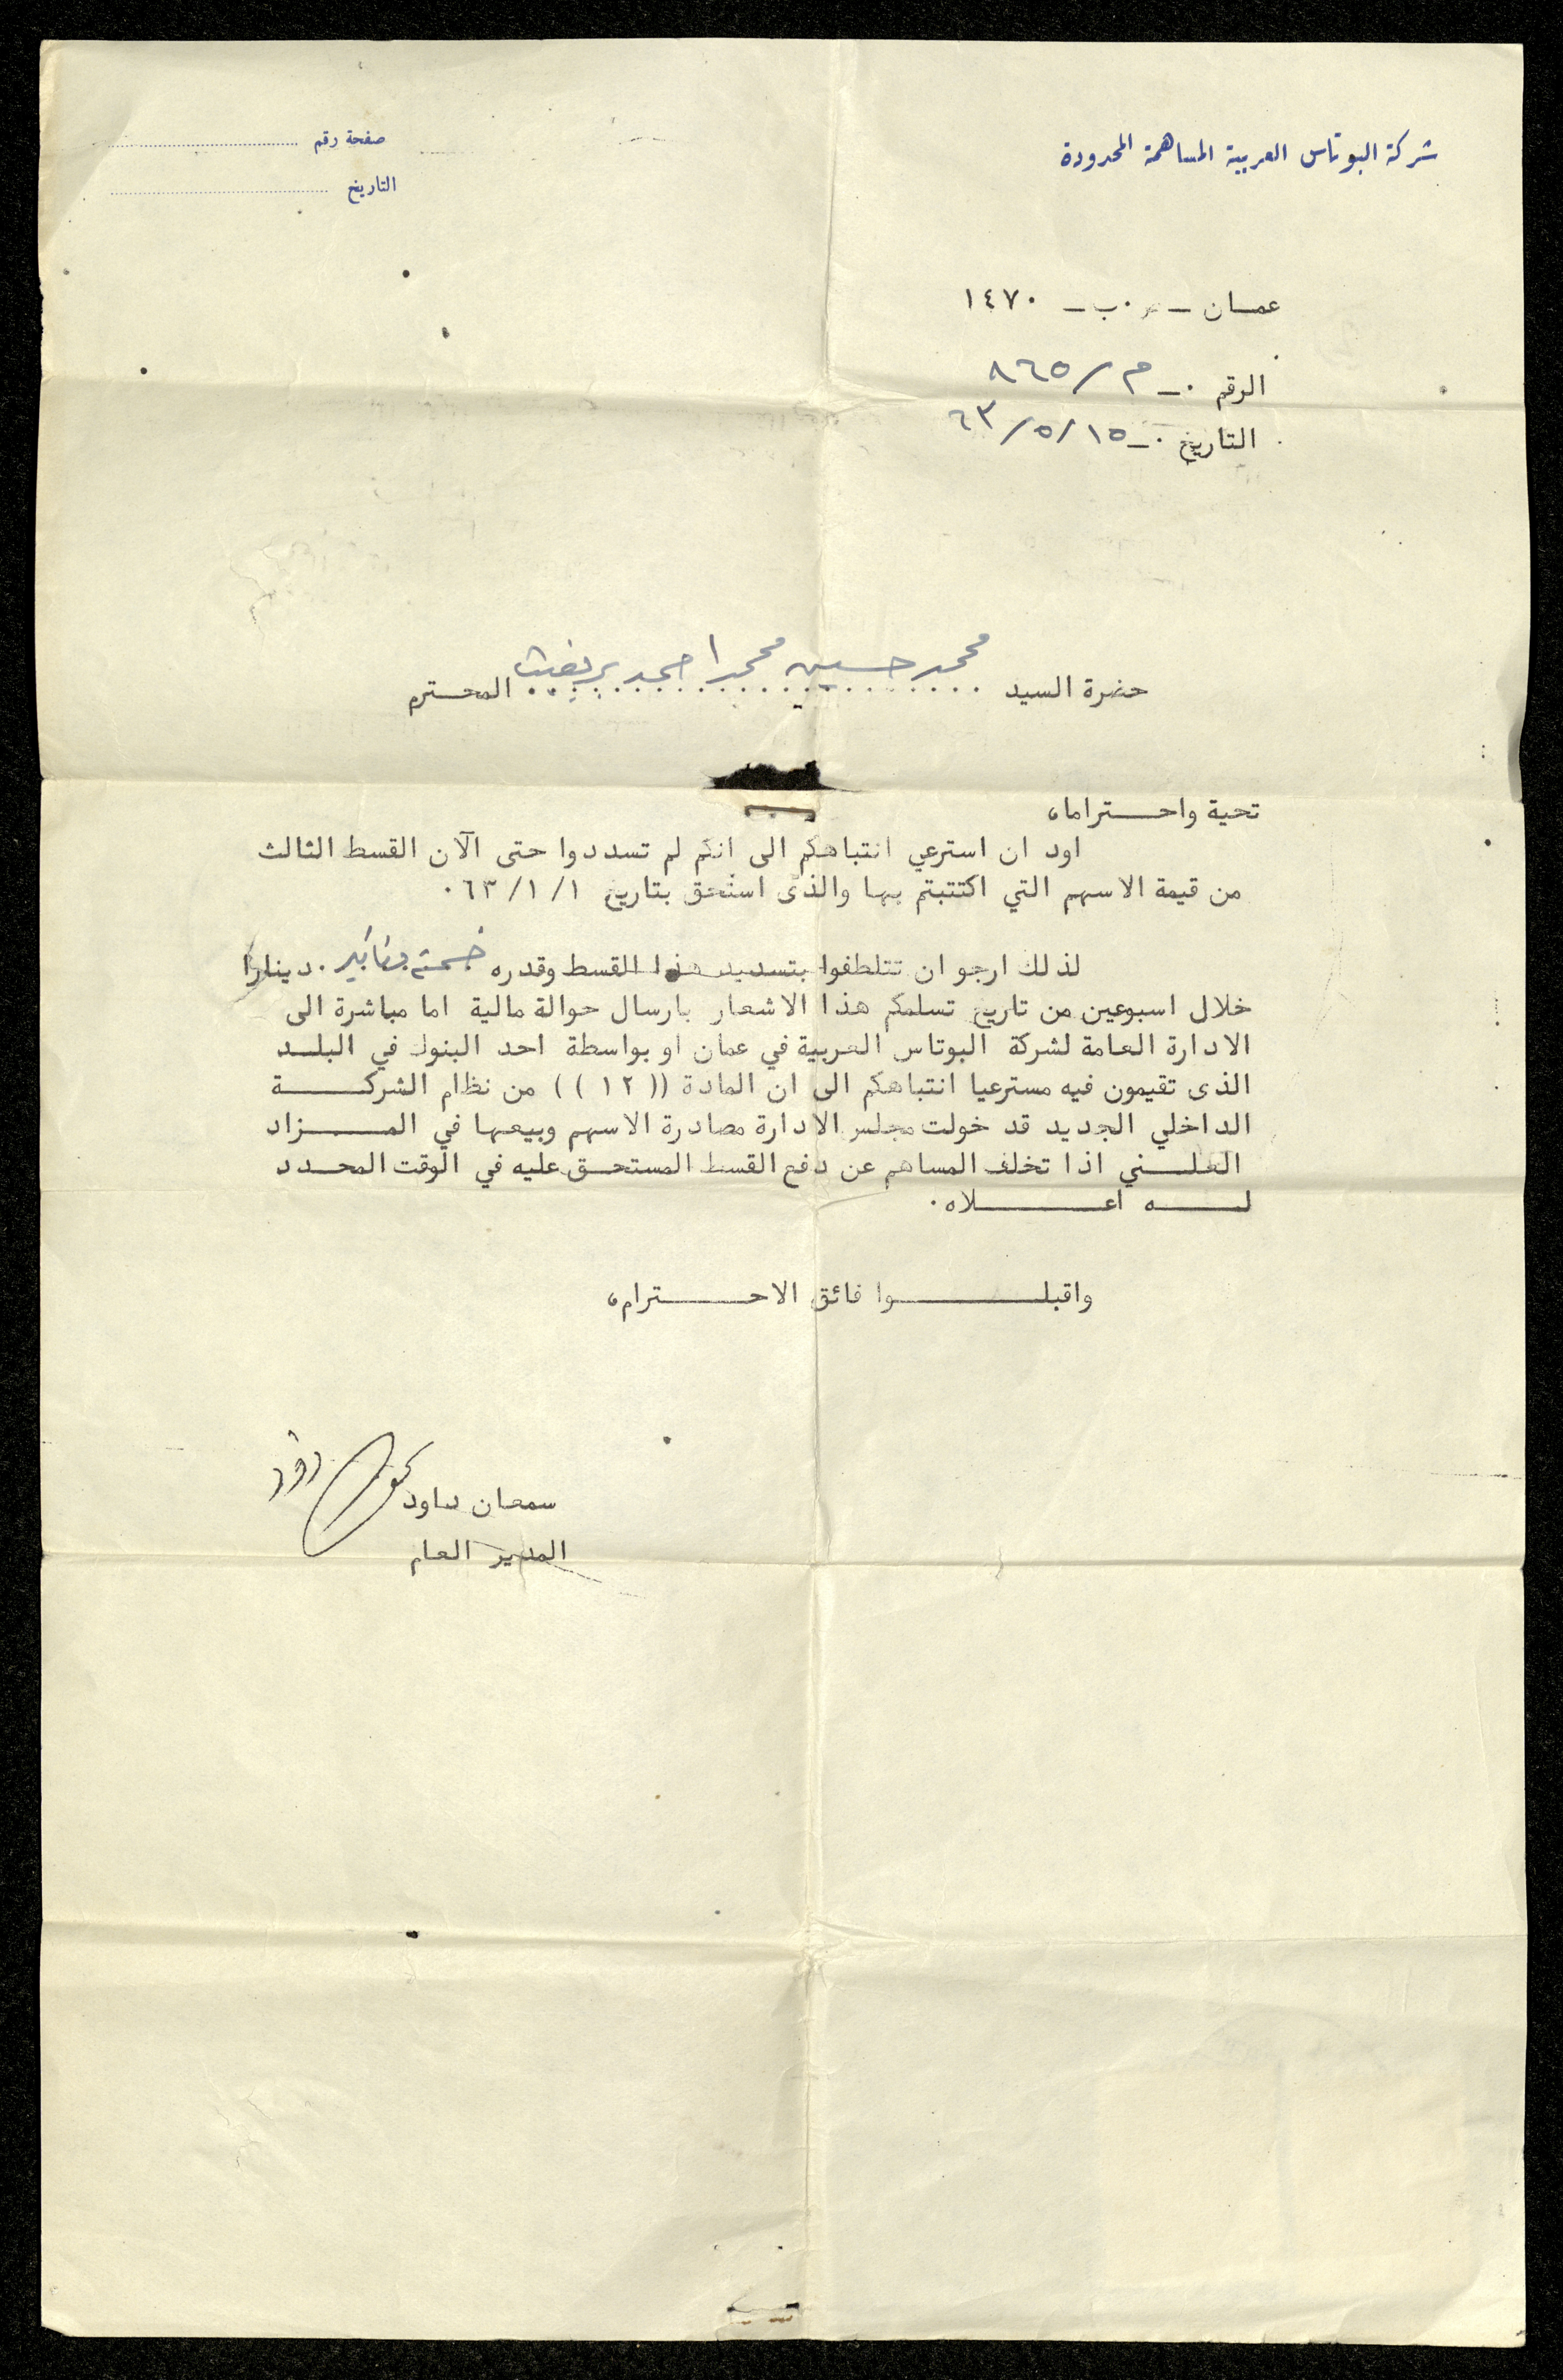 شركة البوتاس العربية المساهمة المحدودة
صفحة رقم
التاريخ
عمـان ـ ص.ب ـ ١٤٧٠
الرقم .ـ م/٨٦٥
التاريخ .ـ ١٥/٥/٦٣
حضرة السيد محمد حسين محمد احمد المحـترم
تحية واحـتراما،
اود ان استرعي انتباهكم الى انكم لم تسددوا حتى الآن القسط الثالث
من قيمة الاسهم التي اكتتبتم بها والذى استحق بتاريخ ١/١/٦٣.
لذلك ارجو ان تتلطفوا بتسديد هذا القسط وقدره خمسة دنانير . دينارا
خلال اسبوعين من تاريخ تسلمكم هذا الاشعار بارسال حوالة مالية اما مباشرة الى
الادارة العامة لشركة البوتاس العربية في عمان او بواسطة احد البنوك في البلـد
الذى تقيمون فيه مسترعيا انتباهكم الى ان المادة ((١٢)) من نظام الشركـة
الداخلي الجديد قد خولت مجلس الادارة مصادرة الاسهم وبيعها في المـزاد
العلـني اذا تخلف المساهم عن دفع القسط المستحـق عليه في الوقت المحـدد
لـه اعـلاه.
واقبلـوا فائق الاحـترام،
سمعان داود
المدير العام